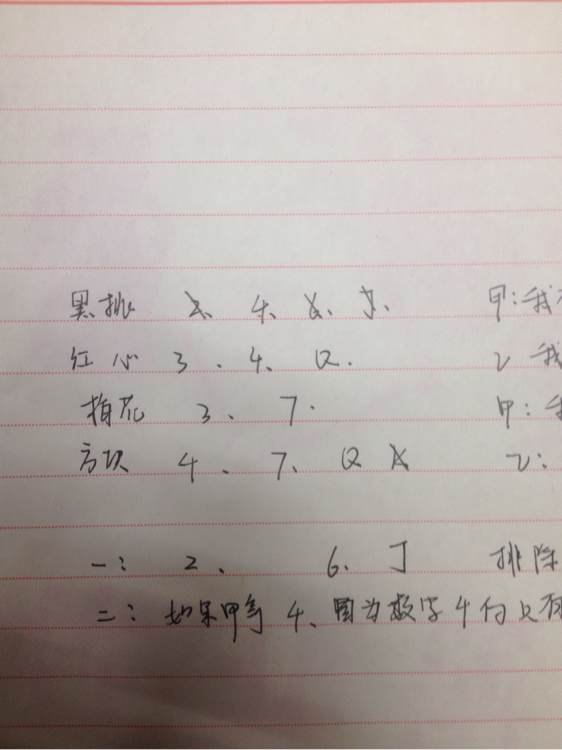 黑桃 2、4、6、J、 甲:我
红心 3、4、Q. 乙 我
梅花 3、7. 甲:我
方块 4、7、Q K 乙:
一: 2、 6、J 排除
二:如果甲等4、因为数字4的只有